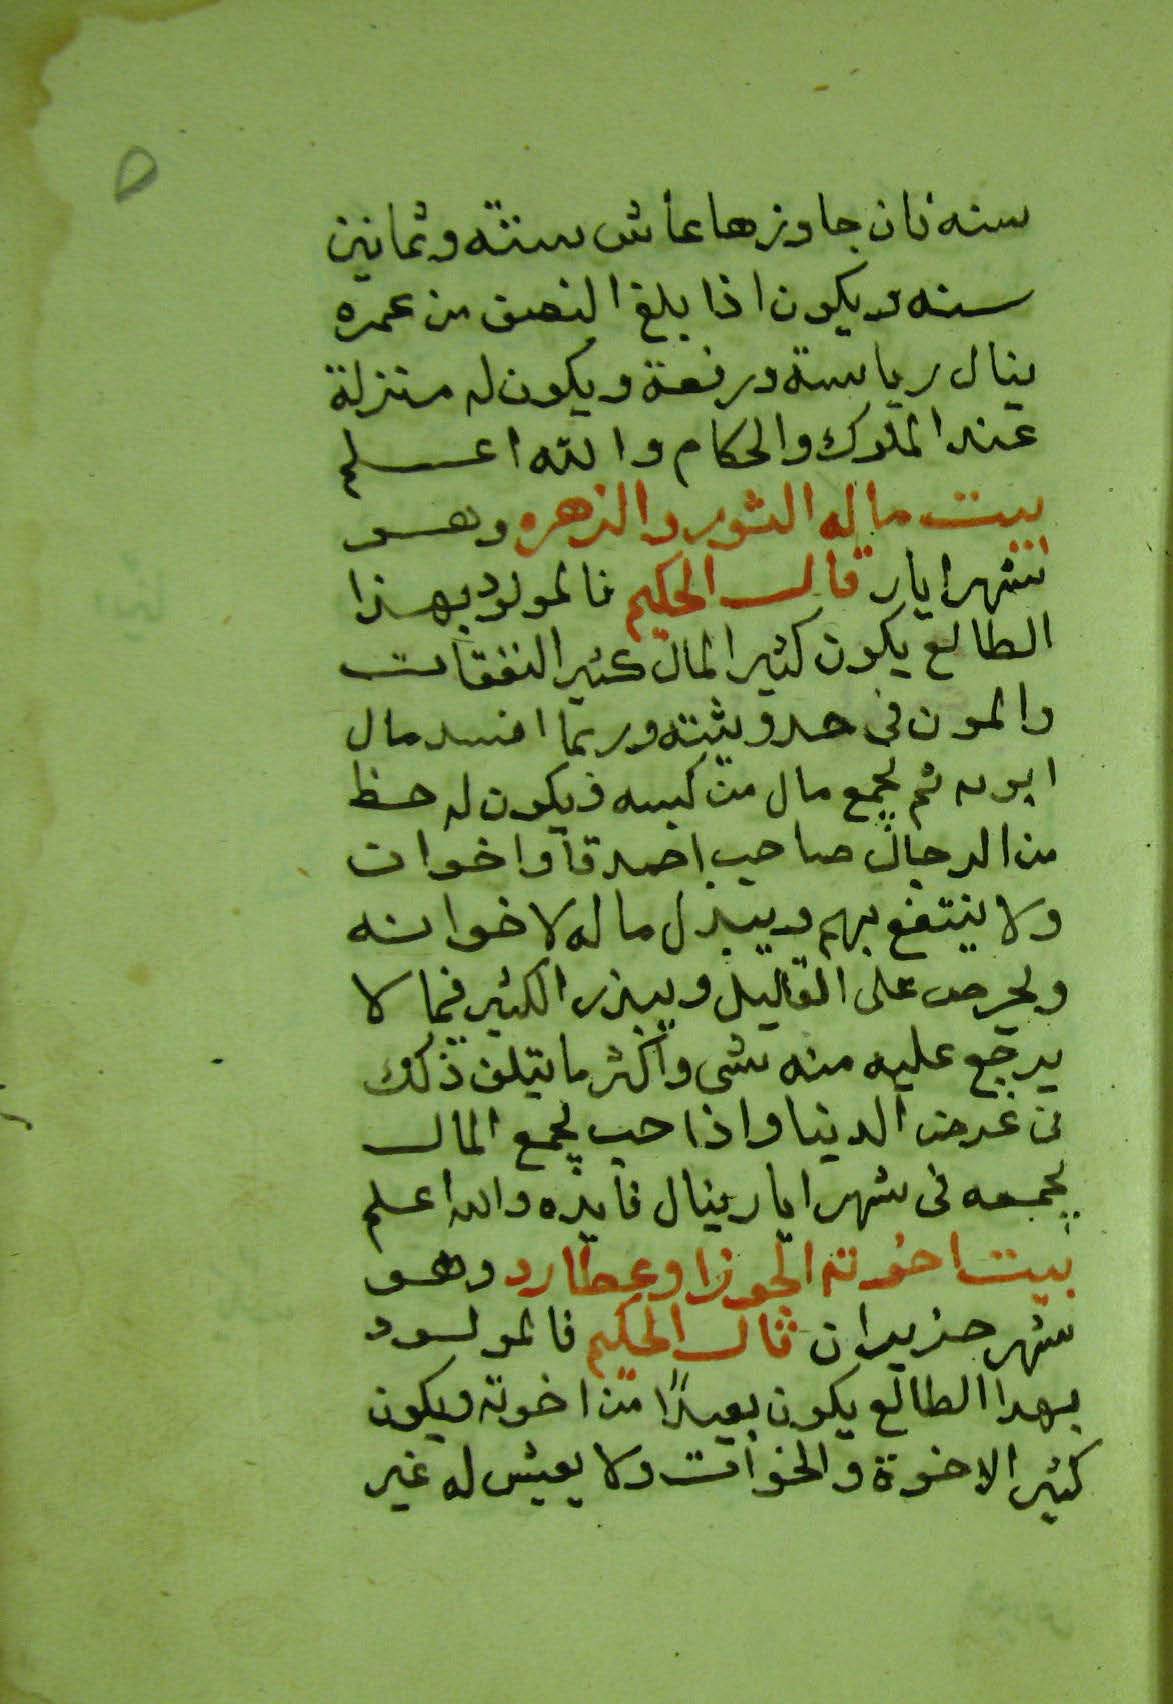 ٥
سنه فان جاوزها عاش ستته وثمانين
سنه ويكون اذا بلغ النصف من عمره
ينال رياسة ورفعة ويكون له منزلة
عند الملوك والحكام والله اعلم
بيت ماله الثور والزهره وهو
شهر ايار قال الحكيم فالمولود بهذا
الطالع يكون كثير المال كثير النفقات
والمون في حدويثته وربما افسد مال
ابويه ثم يجمع مال من كسبه ويكون له حظ
من الرجال صاحب اصدقا واخوان
ولا ينتفع بهم ويبذل ماله لاخوانه
ويحرص على القليل ويبذر الكثير فيما لا
يرجع عليه منه شى واكثر ما يتلف ذلك
فى غرض الدنيا واذا حب يجمع المال
يجمعه فى شهر ايار ينال فايده والله اعلم
بيت اخوته الجوزا وعطارد وهو
شهر حزيران قال الحكيم فالمولود
بهدا الطالع يكون بعيدًا من اخوته ويكون
كثير الاخوة والخوات ولا يعيش له غير